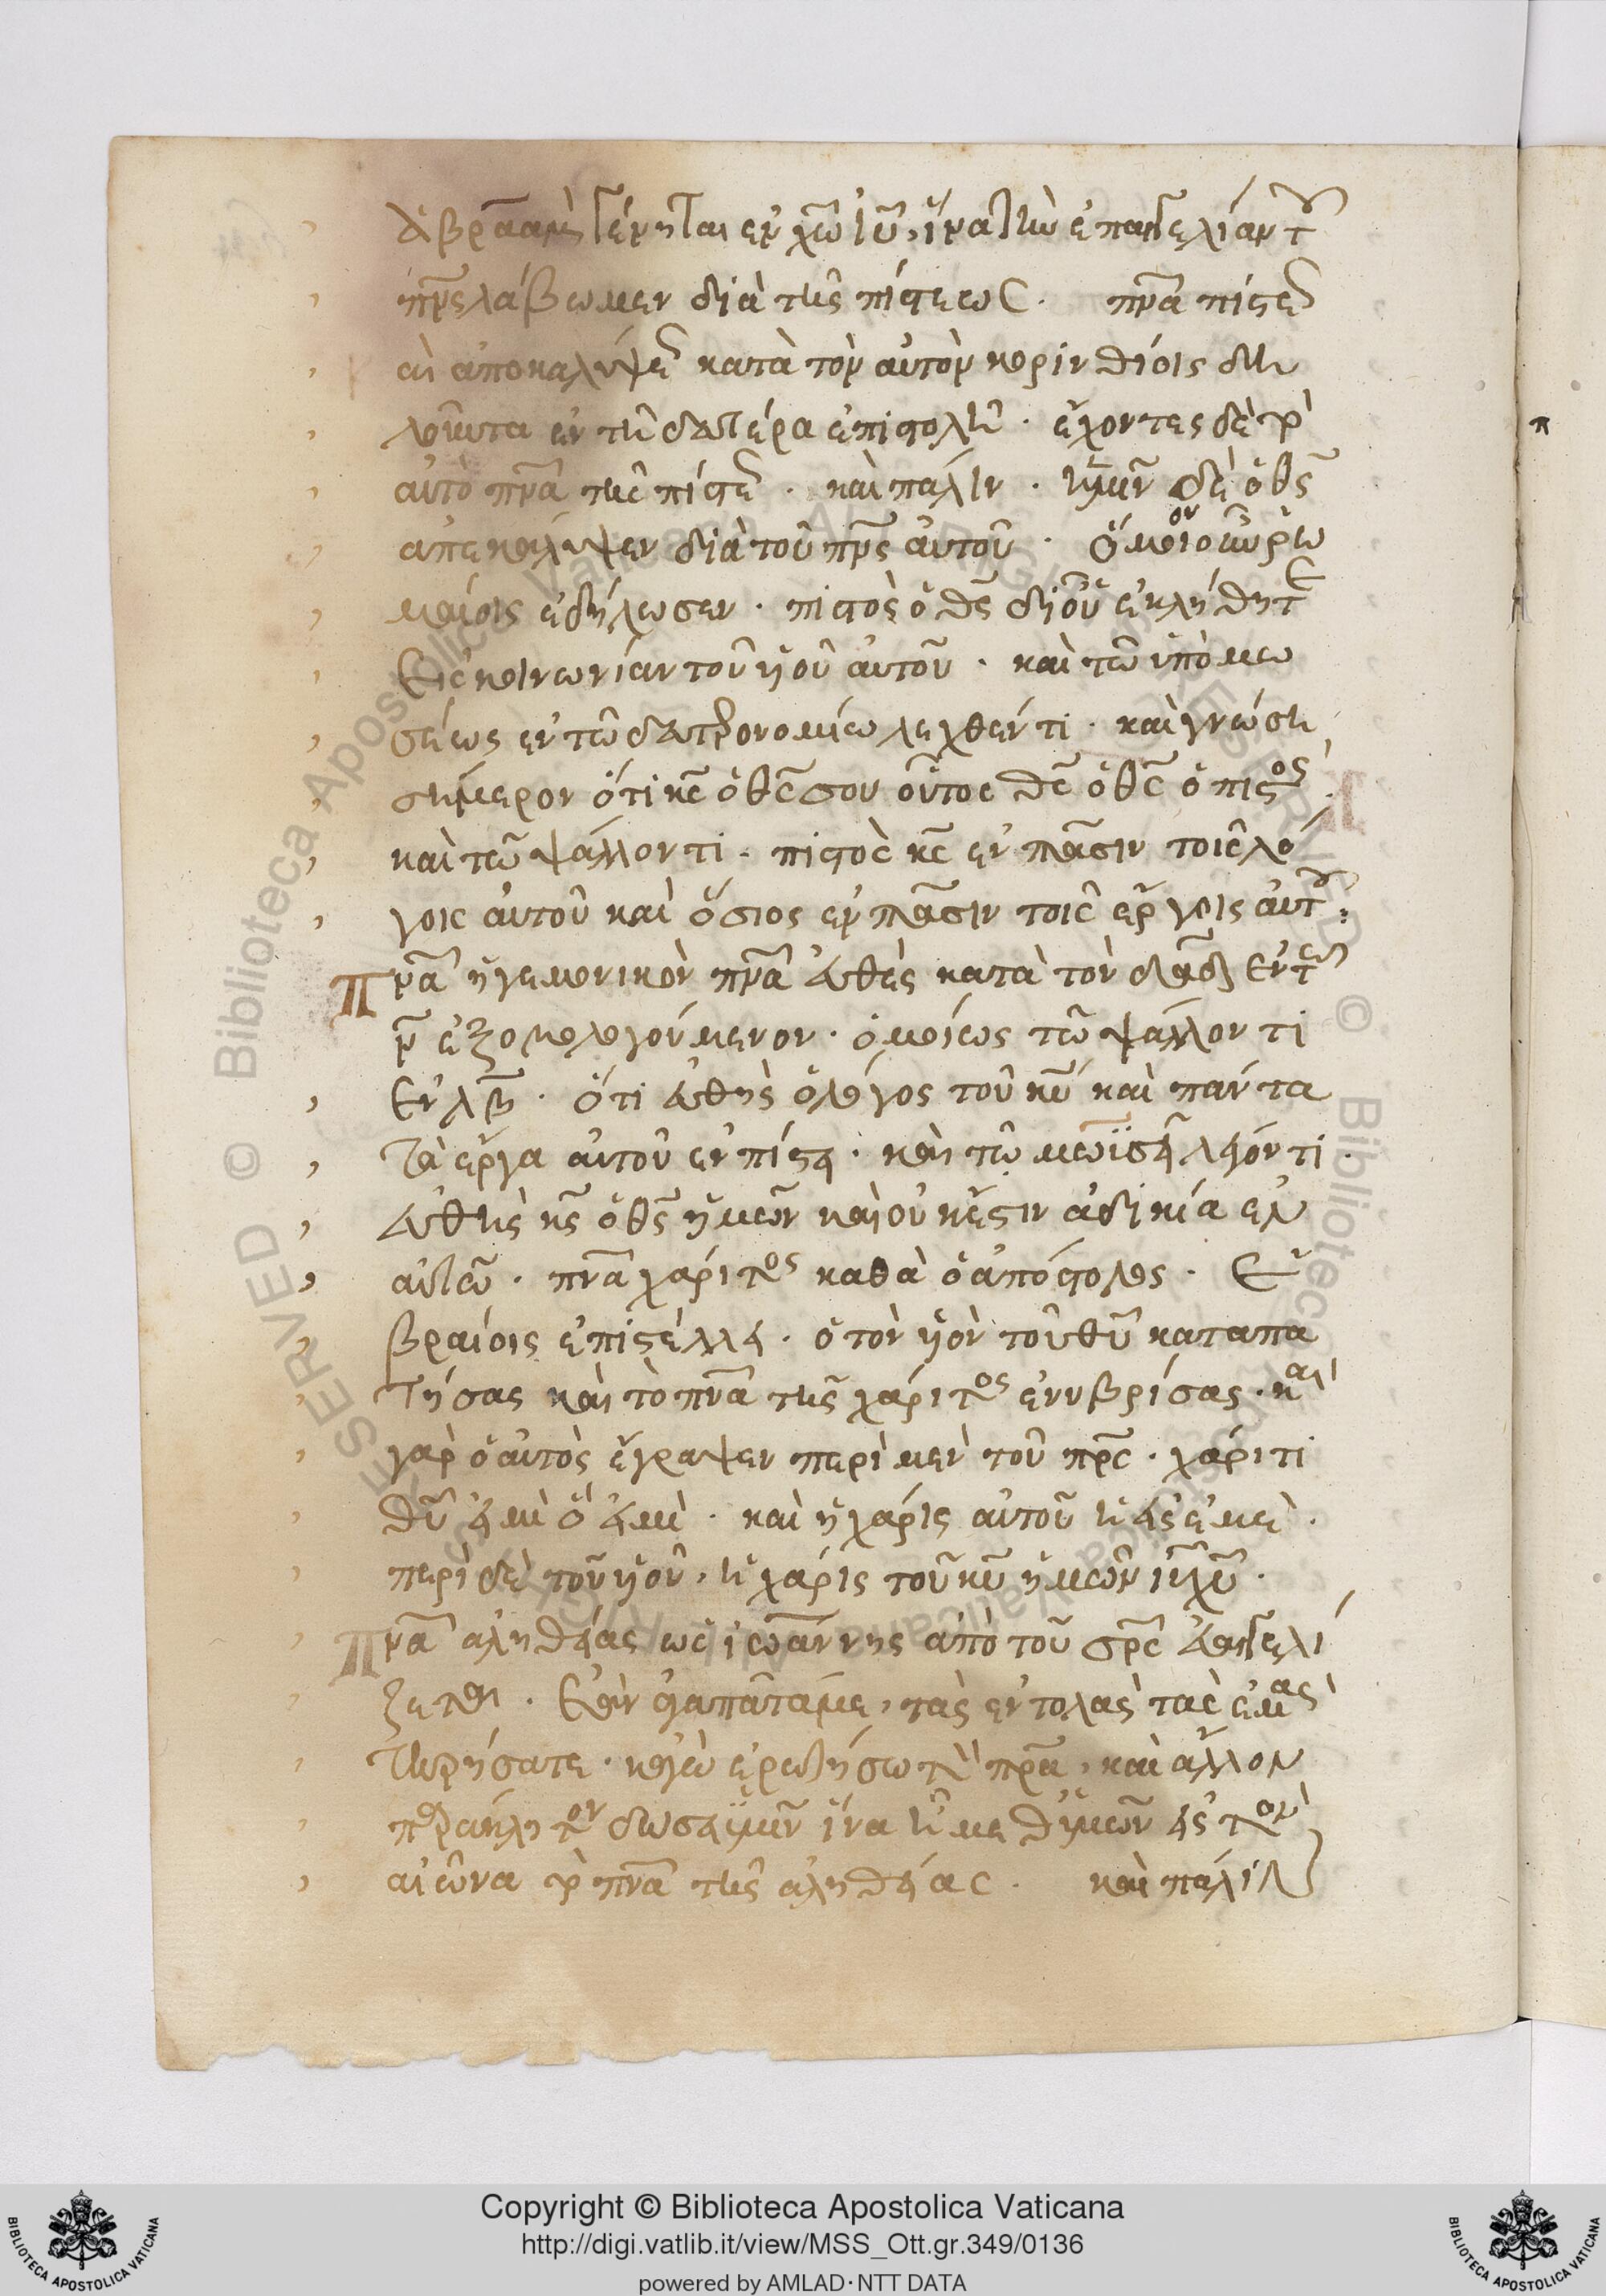 ἀβραὰμ γένηται ἐν χῶ ἰῦ, ἵνα τὴν ἐπαγγελίαν τοῦ
πρς λάβωμεν διὰ τῆς πίστεως. πνα πίστεως
ἀποκαλύψεως κατὰ τὸν αὐτὸν κορινθίοις δη
λοῦντα ἐν τῆ δευτέρα ἐπιστολῆ. ἔχοντες δὲ τὸ
αὐτὸ πνα τῆς πίστεως. καὶ πάλιν. ἡμῖν δὲ ὁ θς
ἀπεκάλυψεν διὰ τοῦ πνς αὐτοῦ. ὅμοιον οὖν ῥω
μαίοις ἐδήλωσεν. πιστὸς ὁ θς δι οὗ ἐκλήθητε
εἰς κοινωνίαν τοῦ ὑοῦ αὐτοῦ. καὶ τῶ ὑπὸ μω
σέως ἐν τῶ δευτερονομίω λεχθέντι. καὶ γνώση
σήμερον ὅτι κς ὁ θς σου οὗτος θς ὁ θς ὁ πιστὸς.
καὶ τῶ ψάλλοντι. πιστὸς κς ἐν πᾶσιν τοῖς λό
γοις αὐτοῦ καὶ ὅσιος ἐν πᾶσιν τοῖς ἔργοις αὐτοῦ:
Πνα ἡγεμονικὸν πνα εὐθὲς κατὰ τὸν δαδ ἐν τῶ
ν ἐξομολογούμενον. ὁμοίως τῶ ψάλλοντι
ἐν λβ. ὅτι εὐθὴς ὁ λόγος τοῦ κυ καὶ πάντα
τὰ ἔργα αὐτοῦ ἐν πίστει. καὶ τῶ μωϋσῆ λέγοντι.
εὐθὴς κς ὁ θς ἡμῶν καὶ οὐκ ἔστιν ἀδικία ἐν
αὐτῶ. πνα χάριτος καθὰ ὁ ἀπόστολος. Ἑ
βραίοις ἐπιστέλλει. ὁ τὸν ὑὸν τοῦ θυ καταπα
τήσας καὶ τὸ πνα τῆς χάριτος ἐνυβρίσας. καὶ
γὰρ ὁ αὐτὸς ἔγραψεν περὶ μὲν τοῦ πρς. χάριτι
θυ εἰμὶ ὅ εἰμὶ. καὶ ἡ χάρις αὐτοῦ ἡ εἰς ἐμὲ.
περὶ δὲ τοῦ ὑοῦ, ἡ χάρις τοῦ κυ ἡμῶν ιυ χυ.
Πνα ἀληθείας ὡς ἰωάννης ἀπὸ τοῦ σρς εὐαγγελί
ζεται. Ἐὰν ἀγαπᾶτέ με, τὰς ἐντολὰς τὰς ἐμὰς
τηρήσατε. κἀγὼ ἐρωτήσω τὸν πρα, καὶ ἄλλον
παράκλητον δώσει ὑμῖν ἵνα ᾖ μεθ ὑμῶν εἰς τὸν
αἰῶνα τὸ πνα τῆς ἀληθείας. καὶ πάλιν
Copyright © Biblioteca Apostolica Vaticana
http://digi.vatlib.it/view/MSS_Ott.gr.349/0136
powered by AMLAD·NTT DATA